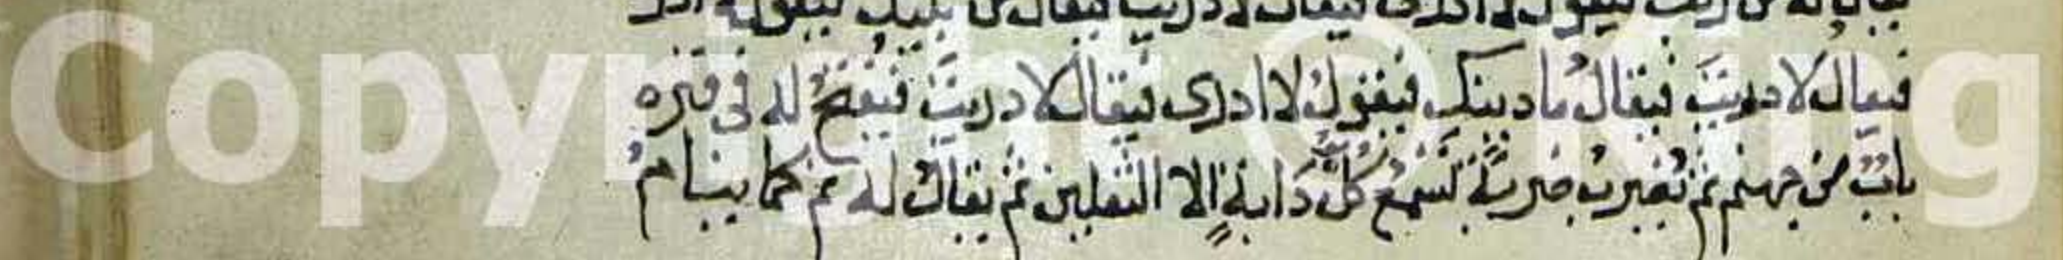 فيقال له من ربك فيقول لا ادرى فيقال لا دريت فيقال من نبيك فيقول لا ادرى
فيقال لا دريت فيقال ما دينك فيقول لا ادرى فيقال لا دريت فيفتح له فى قبره
باب من جهنم ثم يضرب ضربة تسمع كل دابة إلا الثقلين ثم يقال له نم كما ينام